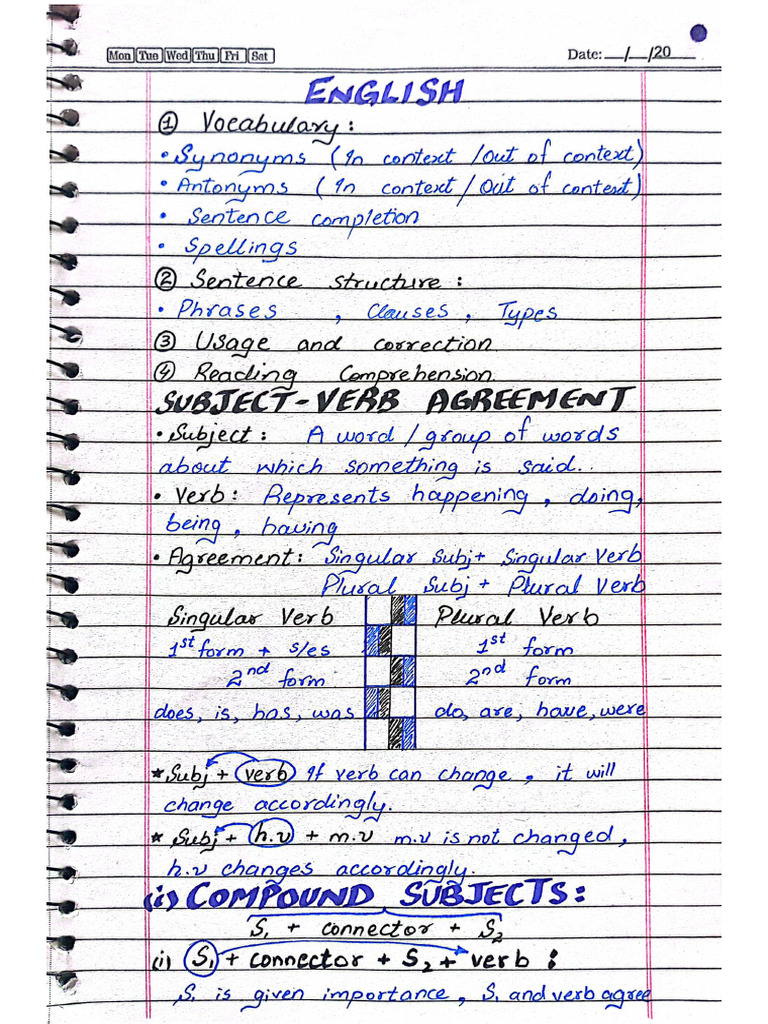 Mon Tue Wed Thu Fri Sat Date: __/__/20__
ENGLISH
① Vocabulary:
• Synonyms (In context /Out of context)
• Antonyms (In context / Out of context)
• Sentence completion
• Spellings
② Sentence structure:
• Phrases , Clauses , Types
③ Usage and correction
④ Reading Comprehension
SUBJECT-VERB AGREEMENT
• Subject: A word / group of words
about which something is said..
• Verb: Represents happening, doing,
being, having
• Agreement: Singular Subj+ Singular Verb
Plural Subj + Plural Verb
Singular Verb Plural Verb
1st form + s/es 1st form
2nd form 2nd form
does, is, has, was do, are, have, were
* Subj + verb If verb can change, it will
change accordingly.
* Subj + h.v + m.v m.v is not changed,
h.v changes accordingly.
(i) COMPOUND SUBJECTS:
S1 + connector + S2
(i) S1 + connector + S2 + verb :
S1 is given importance, S1 and verb agree